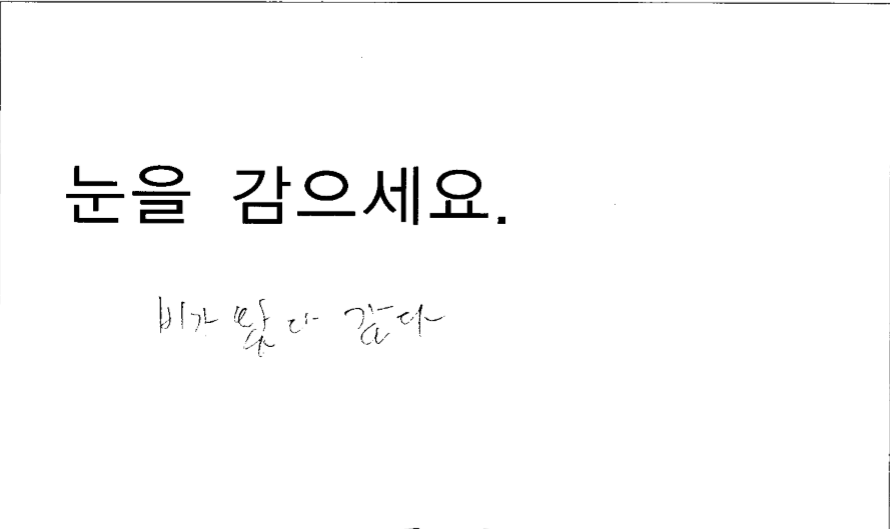 눈을 감으세요.
비가 왔다 갔다